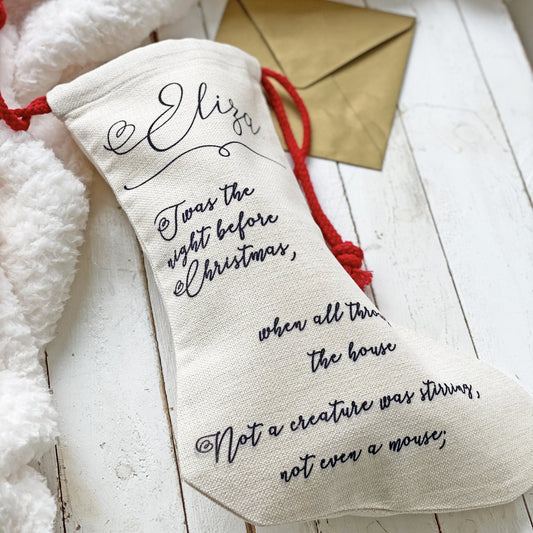 Eliza
Twas the
night before
Christmas,
when all thro
the house
Not a creature was stirring,
not even a mouse;